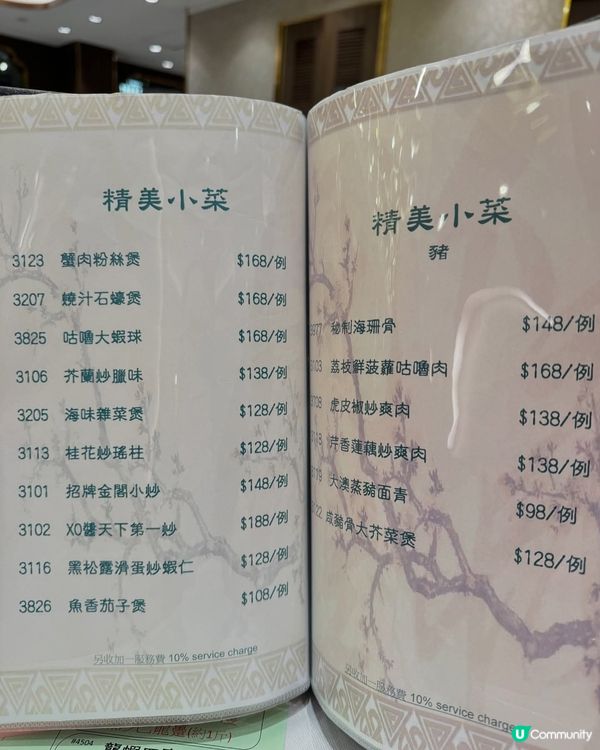 精美小菜
3123 蟹肉粉絲煲 $168/例
3207 燒汁石蠔煲 $168/例
3825 咕嚕大蝦球 $168/例
3106 芥蘭炒臘味 $138/例
3205 海味雜菜煲 $128/例
3113 桂花炒瑤柱 $128/例
3101 招牌金閣小炒 $148/例
3102 XO醬天下第一炒 $188/例
3116 黑松露滑蛋炒蝦仁 $128/例
3826 魚香茄子煲 $108/例
另收加一服務費 10% service charge
精美小菜
豬
秘制海珊骨 $148/例
荔枝鮮菠蘿咕嚕肉 $168/例
虎皮椒炒爽肉 $138/例
芹香蓮藕炒爽肉 $138/例
大澳蒸豬面青 $98/例
咸豬骨大芥菜煲 $128/例
另收加一服務費 10% service charge
(約1斤)
#4504
U Community